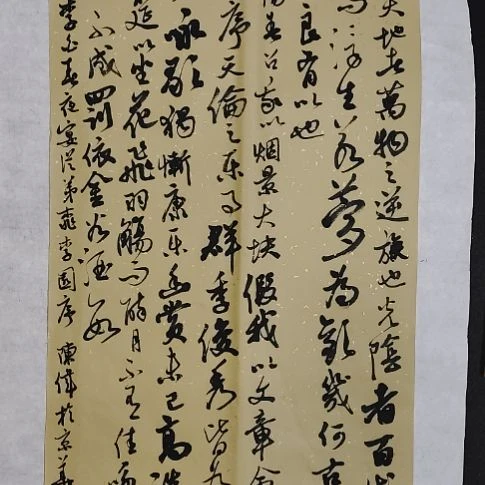 天地者萬物之逆旅也光陰者百代
浮生若夢為歡幾何古
良有以也
陽春召我以烟景大块假我以文章會
序天倫之樂事群季俊秀皆為
詠歌獨慚康樂幽賞未已高談
筵以坐花飛羽觴而醉月不有佳詠
不成罰依金谷酒數
李白春夜宴從弟桃李園序 陳偉於京華